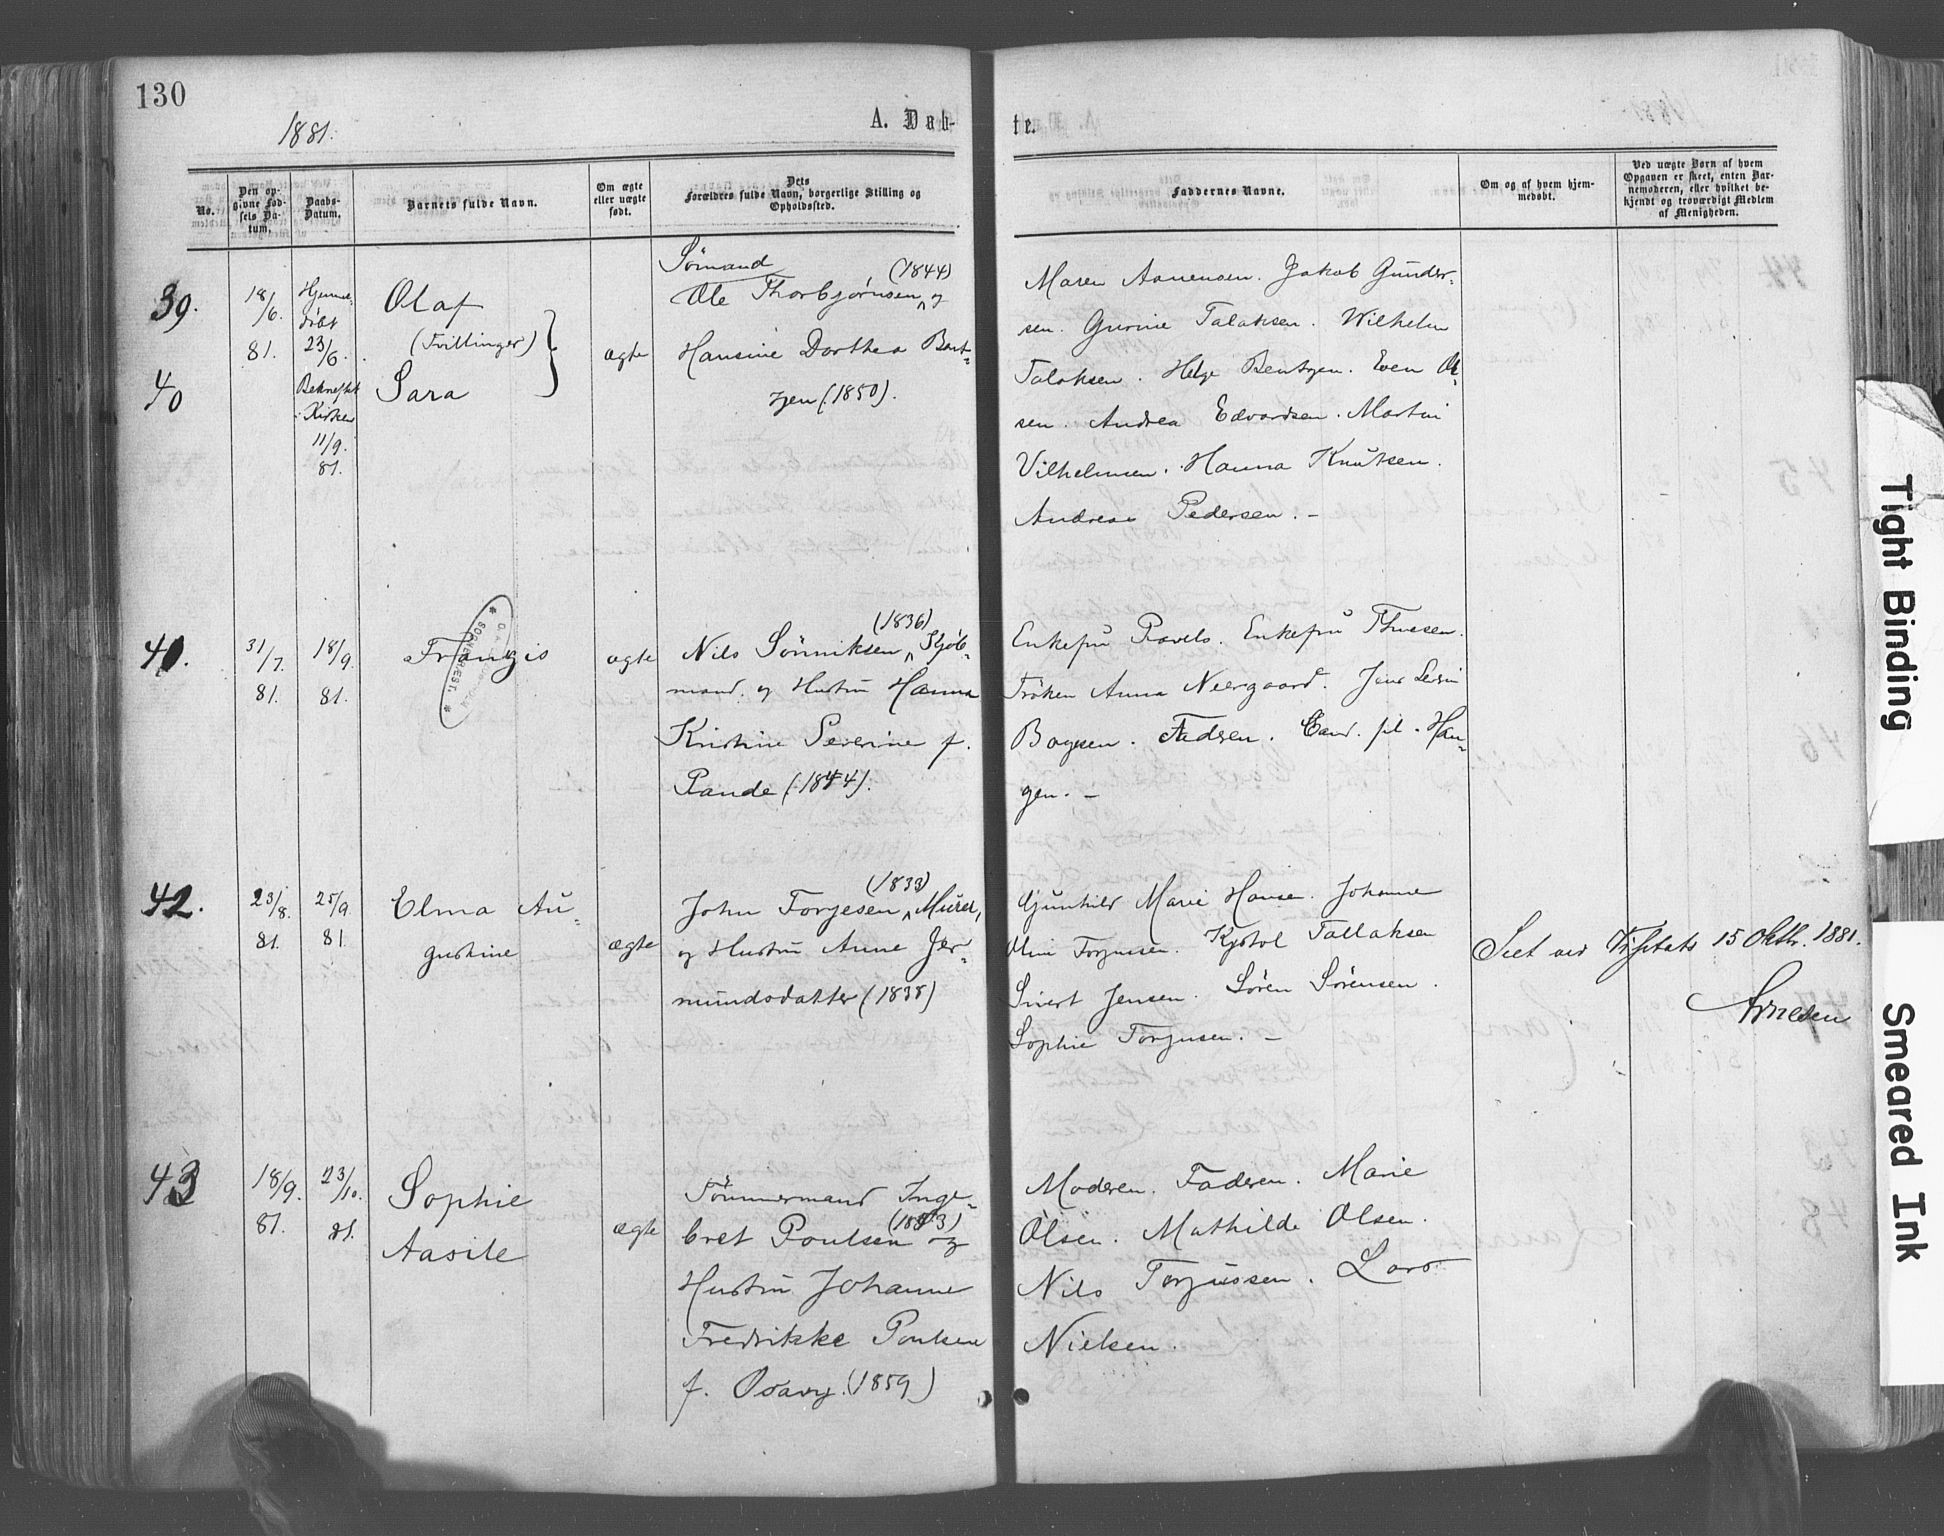 130
1881.
A. Døb-
te.
No.
Den op-
givne Fød-
sels Da-
tum.
Daabs-
Datum.
Barnets fulde Navn.
Om ægte
eller uægte
født.
Dets
Forældres fulde Navn, borgerlige Stilling og
Opholdssted.
Faddernes Navne.
Om og af hvem hjem-
medøbt.
Ved uægte Børn af hvem
Opgaven er skeet, enten Bar-
nemoderen, eller hvilket be-
kjendt og troværdigt Medlem
af Menigheden.
39.
18/6.
81.
Hjemme-
døbt
23/6.
Bekræftet
i Kirken
11/9.
81.
Olaf
(Tvillinger)
40
Sara
ægte
Sømand
(1844)
Ole Thorbjørnsen og
Hansine Dorthea Bent-
zen (1850).
Maren Aanensen. Jakob Gunder-
sen. Gurine Talaksen. Wilhelm
Talaksen. Helge Bentzen. Even Ol-
sen. Andrea Edvardsen. Martin
Vilhelmsen. Hanna Knutsen.
Andreas Pedersen. -
41.
31/7.
81.
18/9.
81.
Frantzis
ægte
(1836)
Nils Sönniksen, Kjøb-
mand. og Hustru Hanna
Kristine Severine f.
Rande (1844).
Enkefru Pavels. Enkefru Thuesen.
Frøken Anna Neergaard.
Boyesen. Faderen. Cand. fil. Han-
gen. -
42.
23/8.
81.
25/9.
81.
Elma Au-
gustine
ægte
(1833)
John Torjesen, Murer,
og Hustru Anne Jer-
mundsdatter (1838)
Gunhild Marie Hansen. Johanne
Olin Torjusen. Kjstol Tallaksen
Sivert Jensen. Sören Sörensen.
Sophie Torjusen. -
Seet ved Visitats 15 Oktbr. 1881.
Arnesen
43
18/9.
81.
23/10.
81.
Sophie
Aasile
ægte
Tömmermand Inge-
bret Poulsen og
Hustru Johanne
Fredrikke Poulsen
f. Osavy. (1859)
Moderen. Faderen. Marie
Olsen. Mathilde Olsen.
Nils Torjussen. Lars
Nielsen.
Tight Binding
Smeared Ink